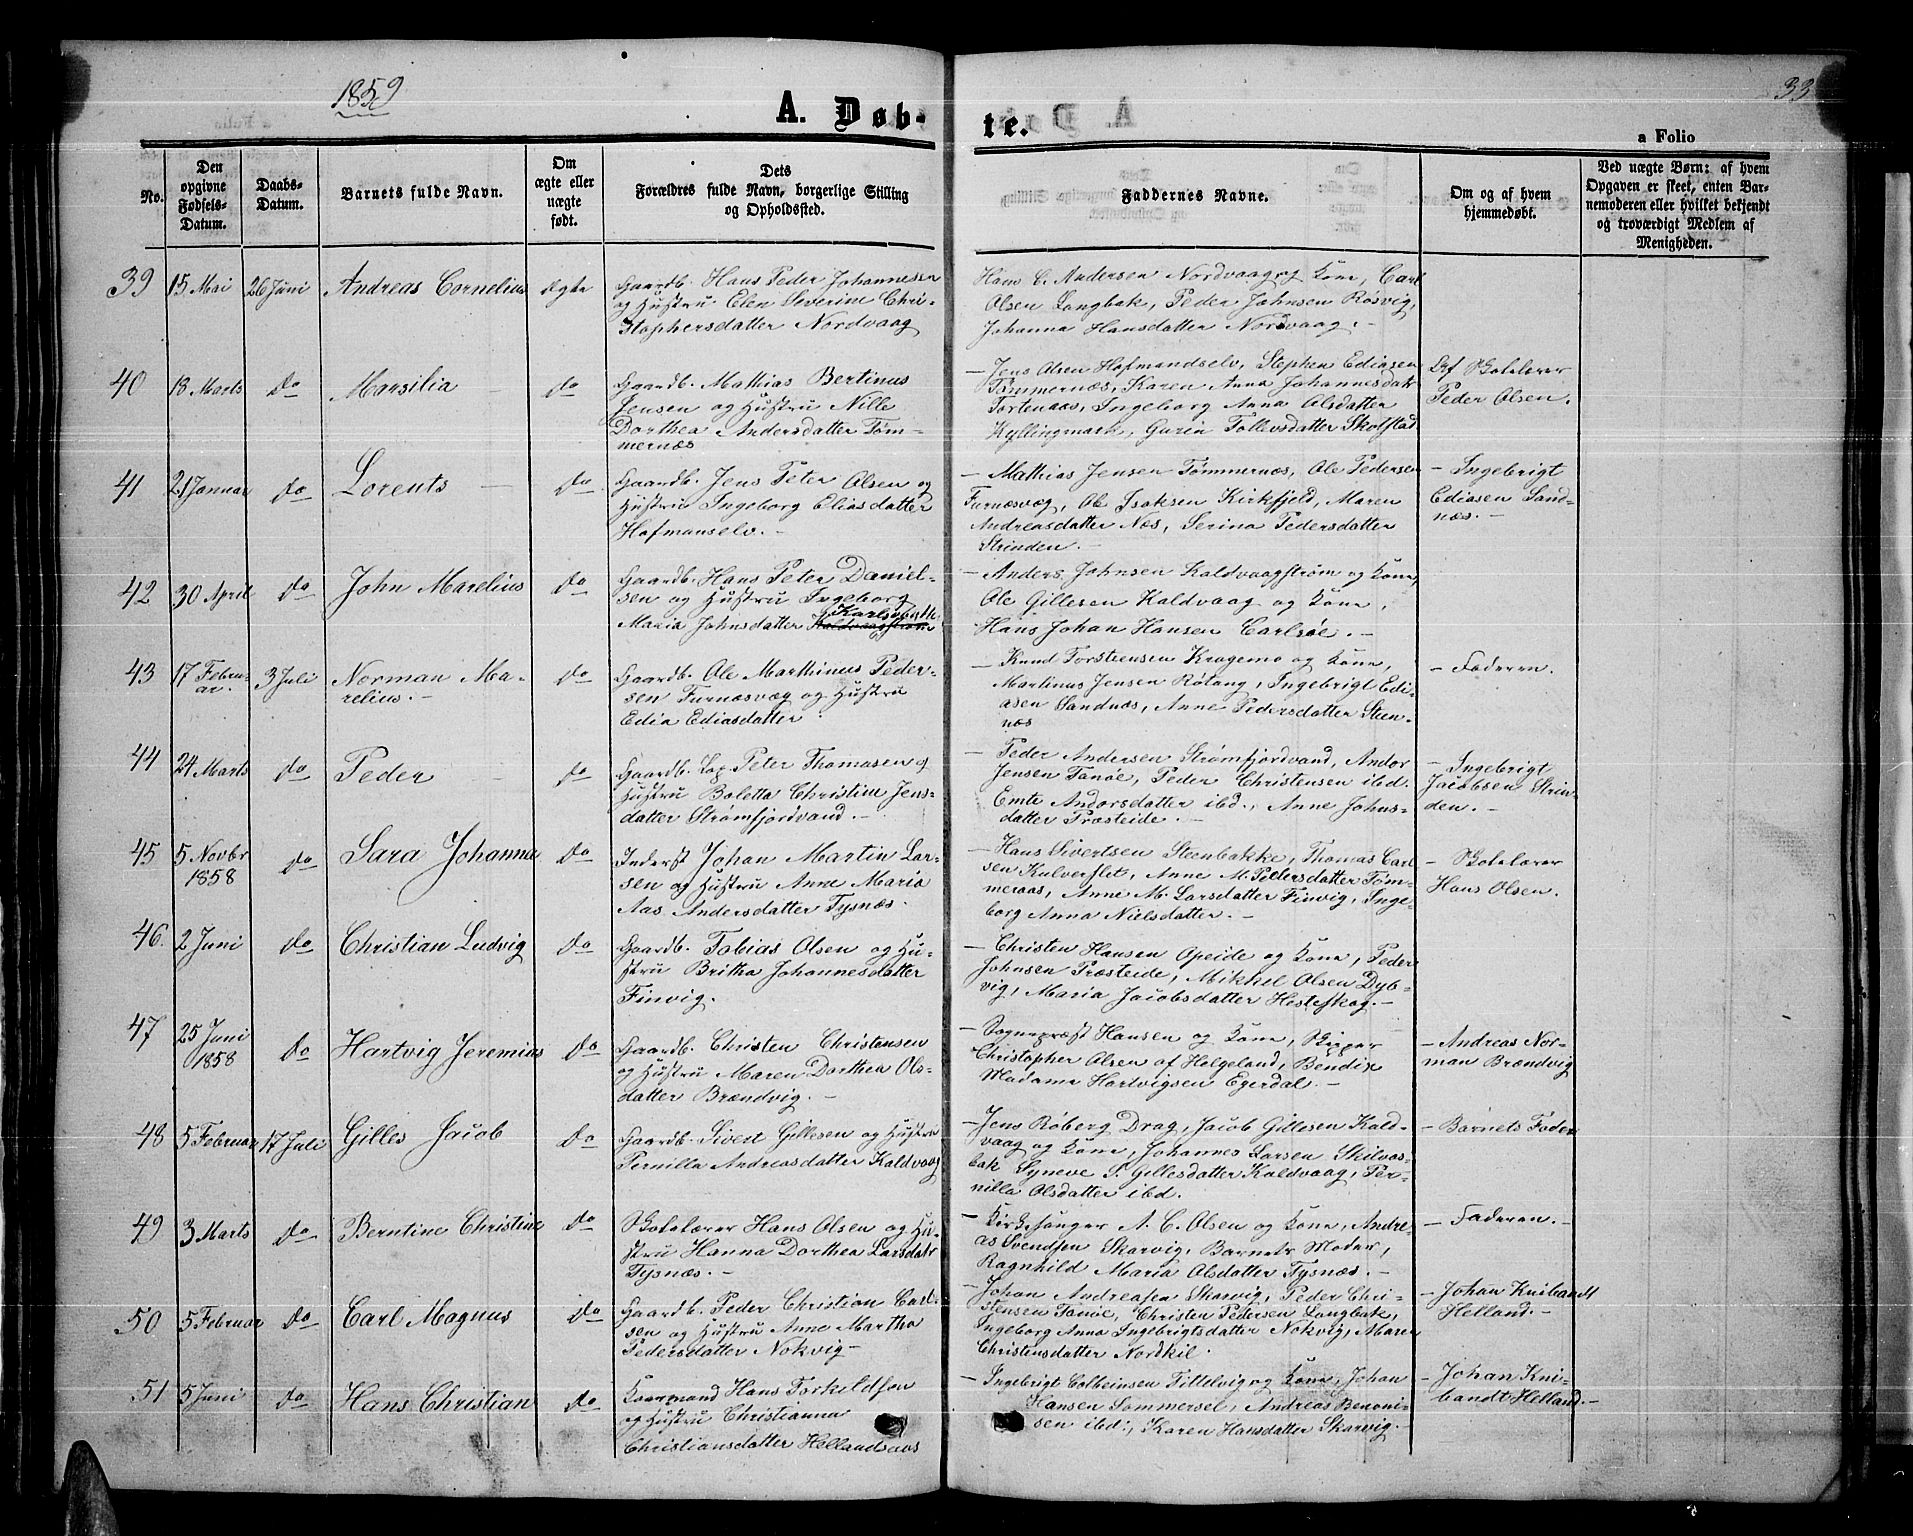 1859
A. Døb-
te.
33
a Folio
No.
Den
opgivne
Fødsels-
Datum.
Daabs-
Datum.
Barnets fulde Navn.
Om
ægte eller
uægte
født.
Dets
Forældres fulde Navn, borgerlige Stilling
og Opholdssted.
Faddernes Navne.
Om og af hvem
hjemmedøbt.
Ved uægte Børn: af hvem
Opgaven er skeet, enten Bar-
nemoderen eller hvilket bekjendt
og troværdigt Medlem af
Menigheden.
39 15 Mai 26 Juni Andreas Cornelius ægte
Gaardb. Hans Peder Johannessen
og Hustru Elen Siverine Chri-
stophersdatter Nordvaag
Hans C. Andersen Nordvaag og Kone, Carl
Olsen Langbak, Peder Johnsen Røsvig,
Johanna Hansdatter Nordvaag. -
40 18 Marts do Marsilia - do
Gaardb. Mathias Bertinus
Jensen og Hustru Nille
Dorthea Andersdatter Tøm-
mernæs
- Jens Olsen Hofmandselv, Stephen Ediasen
Tømmernæs, Karen Anna Johannesdatr
Tortenaas, Ingeborg Anna Olsdatter
Kyllingmark, Guria Tollevsdatter Skotstad
Af Skolelærer
Peder Olsen.
41 21 Januar do Lorents - do
Gaardb. Jens Peter Olsen og
Hustru Ingeborg Eliasdatter
Hofmanselv. -
- Mathias Jensen Tømmernæs, Ole Pedersen
Furnæsvæg, Ole Isaksen Kirkfjeld, Maren
Andreasdatter Næs, Serina Pedersdatter
Strinden. -
- Ingebrigt
Ediasen Sand-
næs. -
42 30 April do John Marelius do
Gaardb. Hans Peter Daniel-
sen og Hustru Ingeborg
Maria Johnsdatter Kaldvaagstrøm
- Anders Johnsen Kaldvaagstrøm og Kone,
Ole Gillesen Kaldvaag og Kone,
Hans Johan Hansen Carlsøe. -
43 17 Febru-
ar. 3 Juli Norman Ma-
relius. - do
Gaardb. Ole Marthinus Peder-
sen Furnæsvæg og Hustru
Edia Ediasdatter
- Knud Torstensen Kragemo og Kone,
Martinus Jensen Røtang, Ingebrigt Edi-
asen Sandnæs, Anne Pedersdatter Steen-
næs
- Faderen.
44 24 Marts do Peder - do
Gaardb. Lap Peter Thomasen og
Hustru Boletta Christine Jens-
datter Strømfjordvand. -
- Peder Andersen Strømfjordvand, Andor
Jensen Tanøe, Peder Christensen ibd.
Emte Andorsdatter ibd., Anne Johns-
datter Præsteide. -
- Ingebrigt
Jacobsen Strin-
den. -
45 5 Novbr
1858 do Sara Johanna do
Inderst Johan Martin Lar-
sen og Hustru Anne Maria
Aas Andersdatter Tysnæs.
- Hans Sivertsen Steenbakke, Thomas Carl-
sen Kulverflet, Anne M. Pedersdatter Tøm-
meraas, Anne M. Larsdatter Finvig, Inge-
borg Anna Nielsdatter. -
- Skolelærer
Hans Olsen.
46. 2 Juni do Christian Ludvig do
Gaardb. Tobias Olsen og Hu-
stru Britha Johannesdatter
Finvig.
- Christen Hansen Opeide og Kone, Peder
Johnsen Præsteide, Mikkel Olsen Dyb-
vig, Maria Jacobsdatter Hesteskog. -
47 25 Juni
1858 do Hartvig Jeremias do
Gaardb. Christen Christensen
og Hustru Maren Dorthea Ols-
datter Brændvig. -
- Sognepræst Hansen og Kone, Skipper
Christopher Olsen af Helgeland, Bendix
Madame Hartvigsen Egerdal. -
- Andreas Nor-
man Brændvig
48 5 Februar 17 Juli Gilles Jacob do
Gaardb. Sivert Gillesen og Hustru
Pernilla Andreasdatter Kaldvaag
- Jens Røberg Drag, Jacob Gillesen Kald-
vaag og Kone, Johannes Larsen Skilvas-
bak Syneve S. Gillesdatter Kaldvaag, Per-
nilla Olsdatter ibd.
- Barnets Fader
49 3 Marts do Berntine Christine do
Skolelærer Hans Olsen og Hu-
stru Hanna Dorthea Larsdatr
Tysnæs. -
- Kirkesanger A. C. Olsen og Kone, Andre-
as Svendsen Skarvig, Barnets Moder,
Ragnhild Maria Olsdatter Tysnæs. -
- Faderen. -
50 5 Februar do Carl Magnus do
Gaardb. Peder Christian Carl-
sen og Hustru Anne Martha
Pedersdatter Nokvig -
- Johan Andreasen Skarvig, Peder Chri-
stensen Tanøe, Christen Pedersen Langbak,
Ingeborg Anna Ingebrigtsdatter Nokvig, Maren
Christensdatter Nordkil.
- Johan Knibandt
Helland. -
51 5 Juni do Hans Christian do
Hans Torkildsen
og Hustru Christianna
Christiansdatter Hellandsaas
- Ingebrigt Colbeinsen Tittelvig og Kone, Johan
Hansen Sommersel, Andreas Benoni-
sen ibd., Karen Hansdatter Skarvig. -
- Johan Kni-
bandt Helland. -